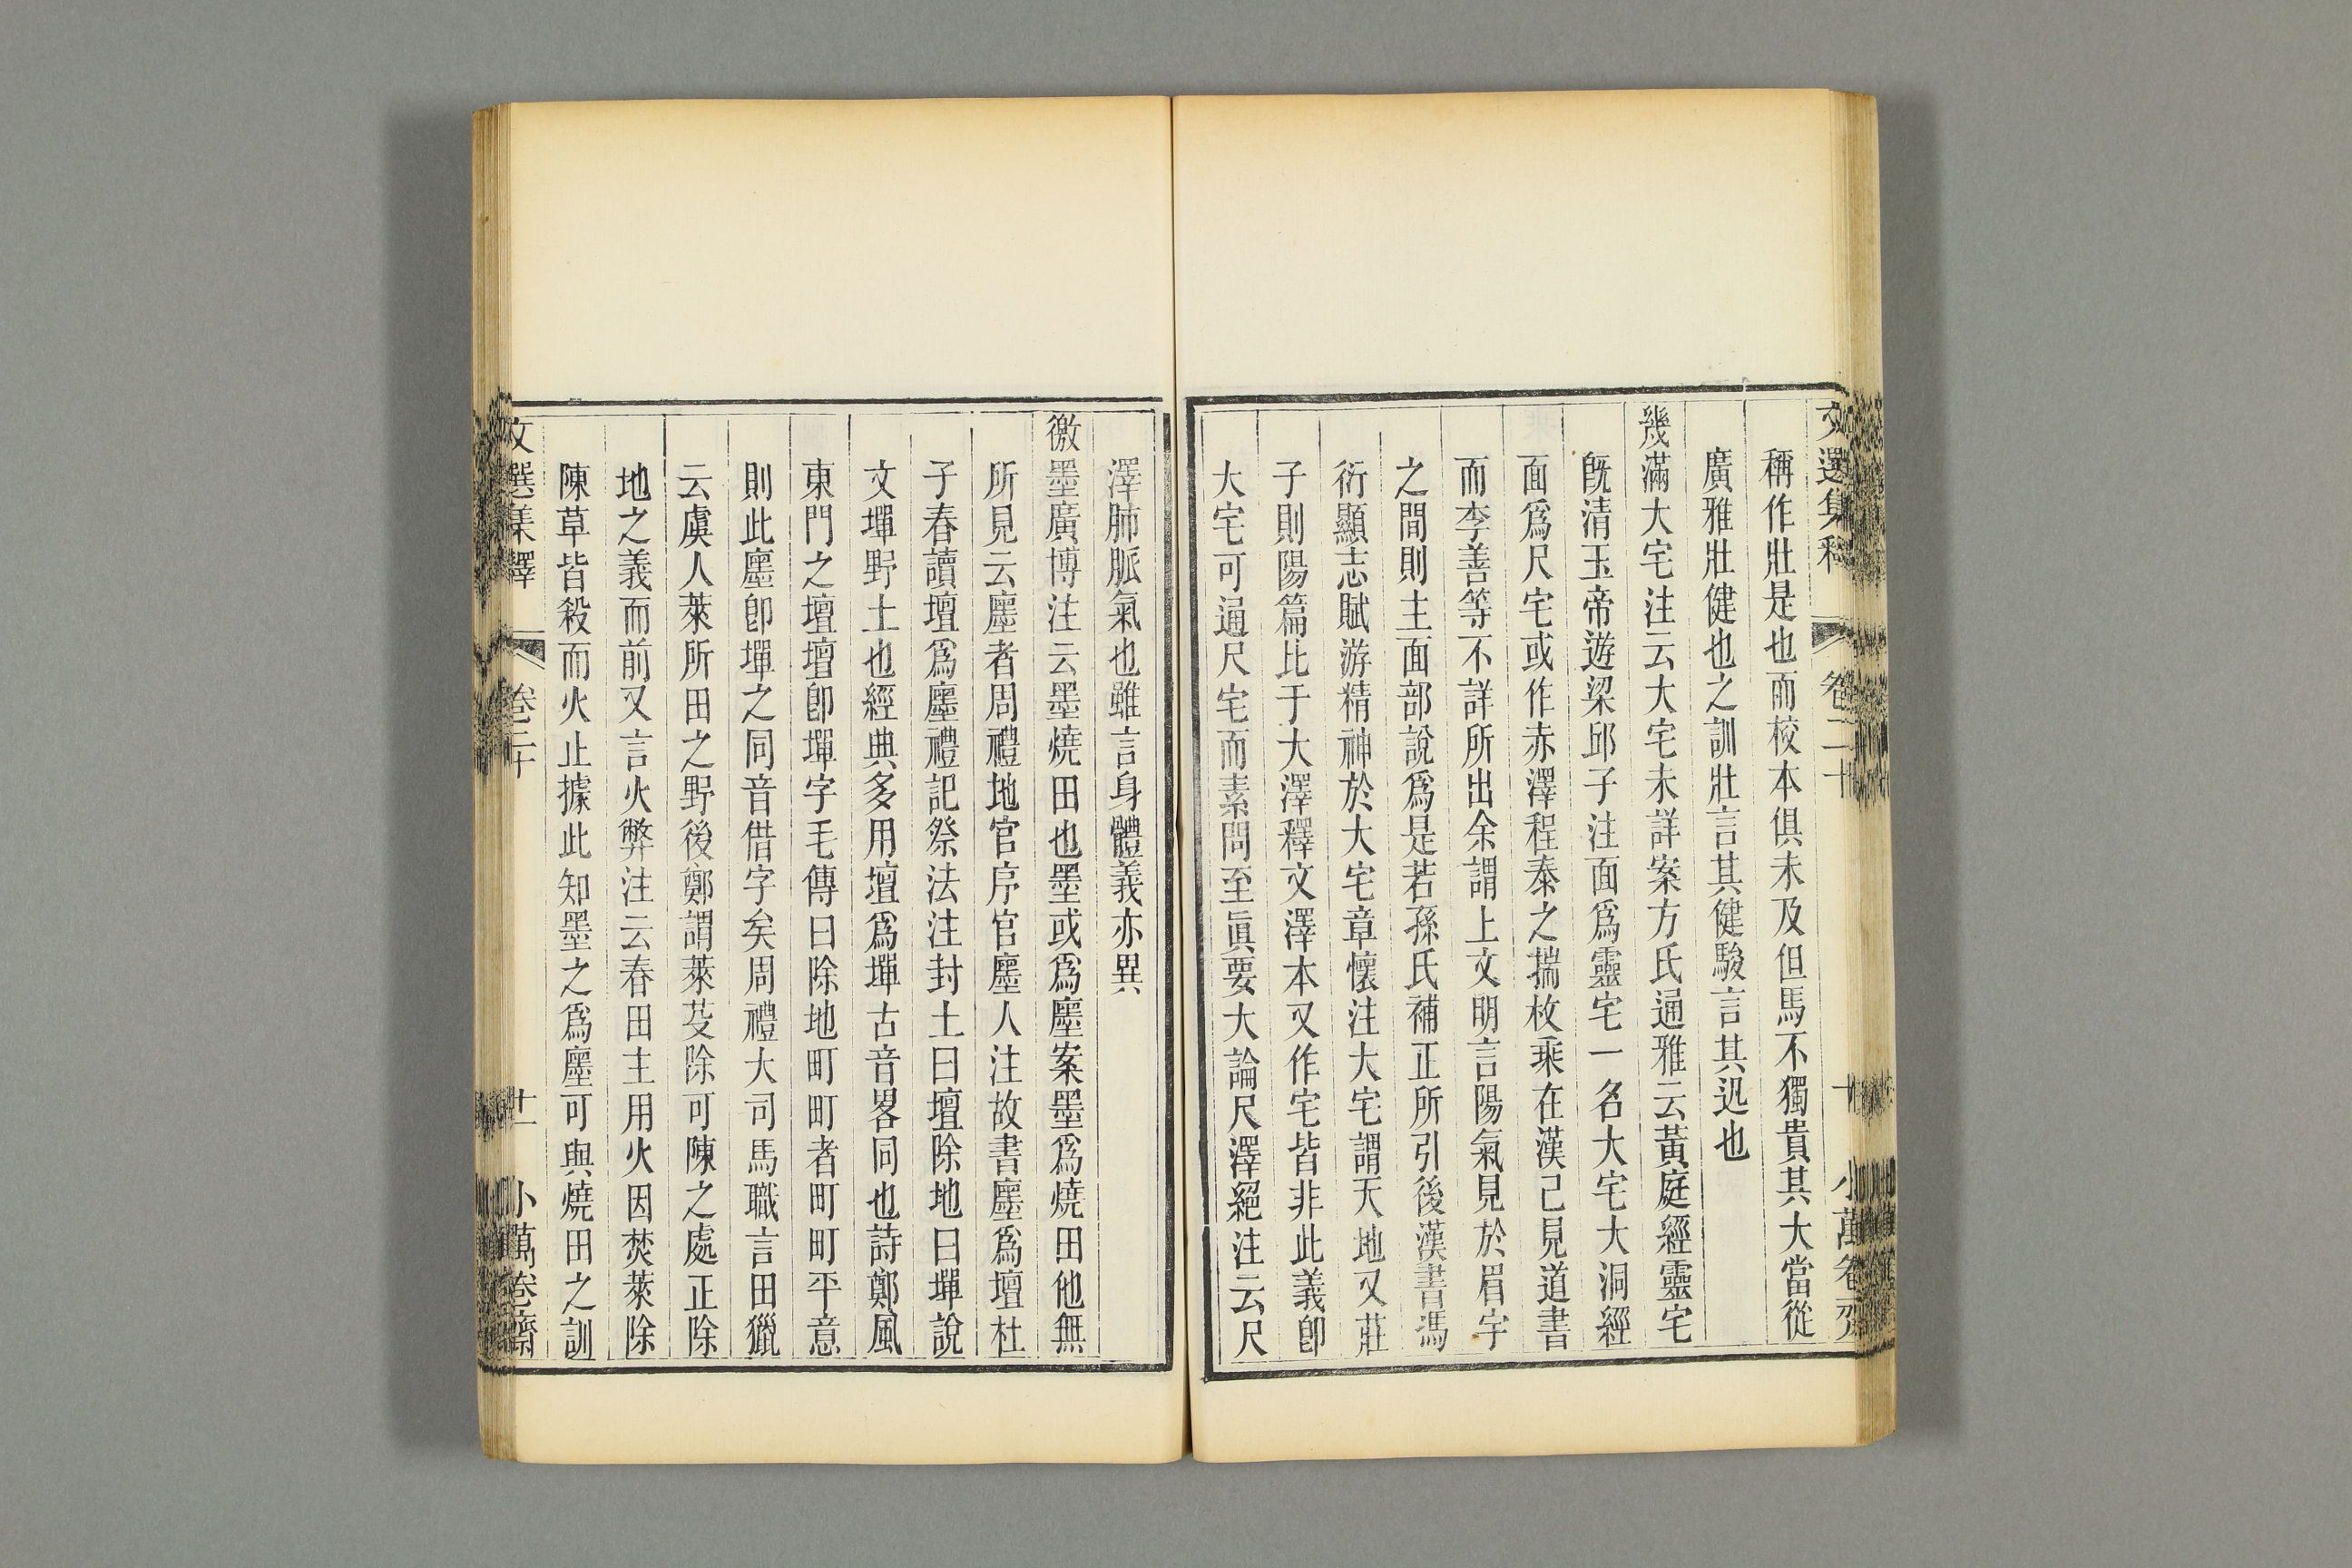 文選集釋 卷二十 十 小萬卷齋
稱作壯是也而校本俱未及但馬不獨貴其大當從
廣雅壯健也之訓壯言其健駿言其迅也
幾滿大宅注云大宅未詳案方氏通雅云黃庭經靈宅
旣清玉帝遊梁邱子注面爲靈宅一名大宅大洞經
面爲尺宅或作赤澤程泰之揣枚乘在漢已見道書
而李善等不詳所出余謂上文明言陽氣見於眉宇
之間則主面部說爲是若孫氏補正所引後漢書馮
衍顯志賦游精神於大宅章懷注大宅謂天地又莊
子則陽篇比于大澤釋文澤本又作宅皆非此義卽
大宅可通尺宅而素問至眞要大論尺澤絕注云尺
澤肺脈氣也雖言身體義亦異
徼墨廣博注云墨燒田也墨或爲廛案墨爲燒田他無
所見云廛者周禮地官序官廛人注故書廛爲壇杜
子春讀壇爲廛禮記祭法注封土曰壇除地曰墠說
文墠野土也經典多用壇爲墠古音畧同也詩鄭風
東門之壇壇卽墠字毛傳曰除地町町者町町平意
則此廛卽墠之同音借字矣周禮大司馬職言田獵
云虞人萊所田之野後鄭謂萊芟除可陳之處正除
地之義而前又言火弊注云春田主用火因焚萊除
陳草皆殺而火止據此知墨之爲廛可與燒田之訓
文選集釋 卷二十 十一 小萬卷齋